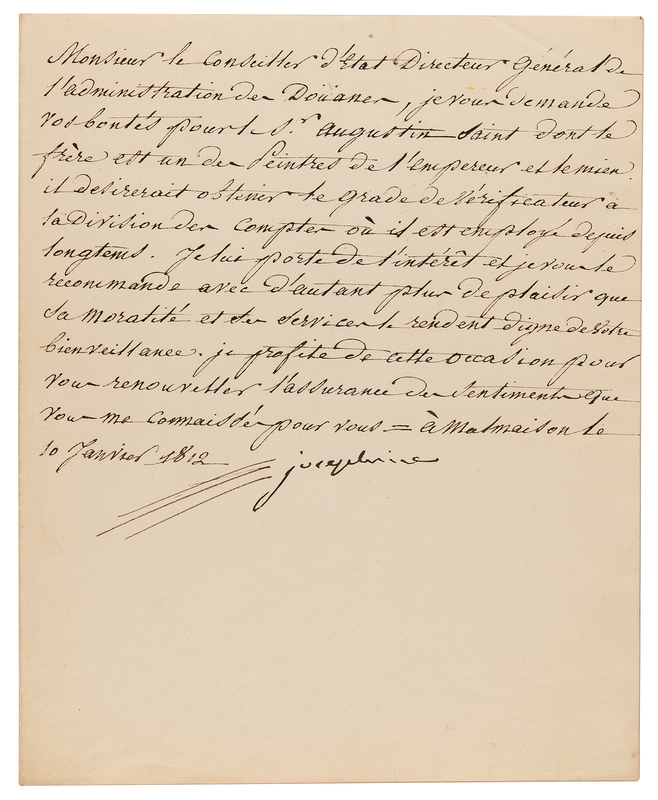 Monsieur le Conseiller d'Etat Directeur Général de
l'administration des Douanes, je vous demande
vos bontés pour le S.r augustin Saint dont le
frère est un des Peintres de l'empereur et le mien.
il desirerait obtenir le grade de Vérificateur à
la Division des Comptes où il est employé depuis
longtems. Je lui porte de l'intérêt et je vous le
recommande avec d'autant plus de plaisir que
sa moralité et ses services le rendent digne de votre
bienveillance. je profite de cette occasion pour
vous renouveller l'assurance des Sentiments que
vous me connaissés pour vous = à Malmaison le
10 Janvier 1812
josephine